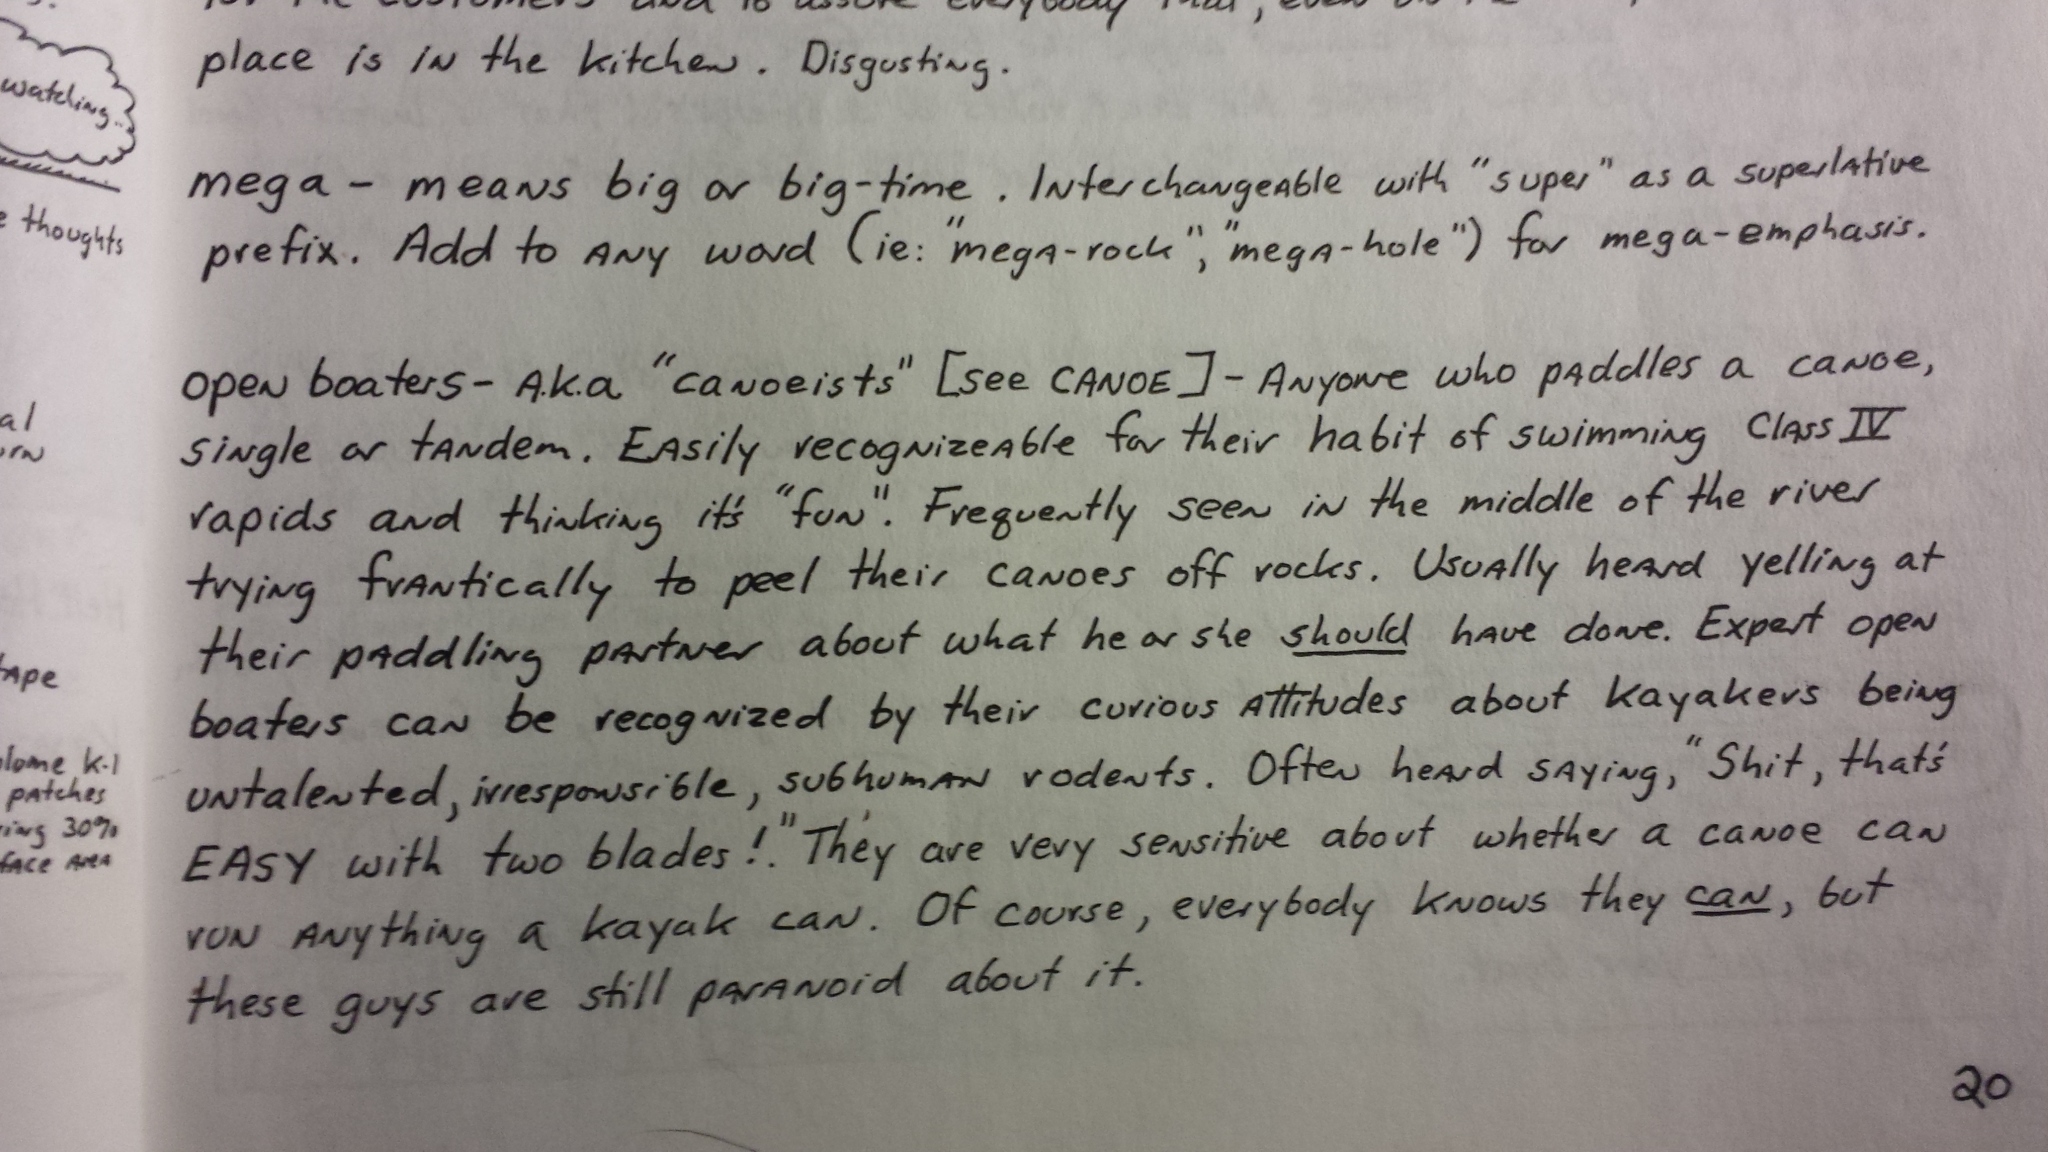 for the customers and to assure everybody that, even on
place is in the kitchen. Disgusting.
mega - means big or big-time. Interchangeable with "super" as a superlative
prefix. Add to any word (ie: "mega-rock", "mega-hole") for mega-emphasis.
open boaters - A.k.a "canoeists" [see CANOE] - Anyone who paddles a canoe,
single or tandem. Easily recognizeable for their habit of swimming Class IV
rapids and thinking it's "fun". Frequently seen in the middle of the river
trying frantically to peel their canoes off rocks. Usually heard yelling at
their paddling partner about what he or she should have done. Expert open
boaters can be recognized by their curious attitudes about kayakers being
untalented, irresponsible, subhuman rodents. Often heard saying, "Shit, that's
EASY with two blades!." They are very sensitive about whether a canoe can
run anything a kayak can. Of course, everybody knows they can, but
these guys are still paranoid about it.
20
watching...
thoughts
al
tape
k-1
patches
30%
face area